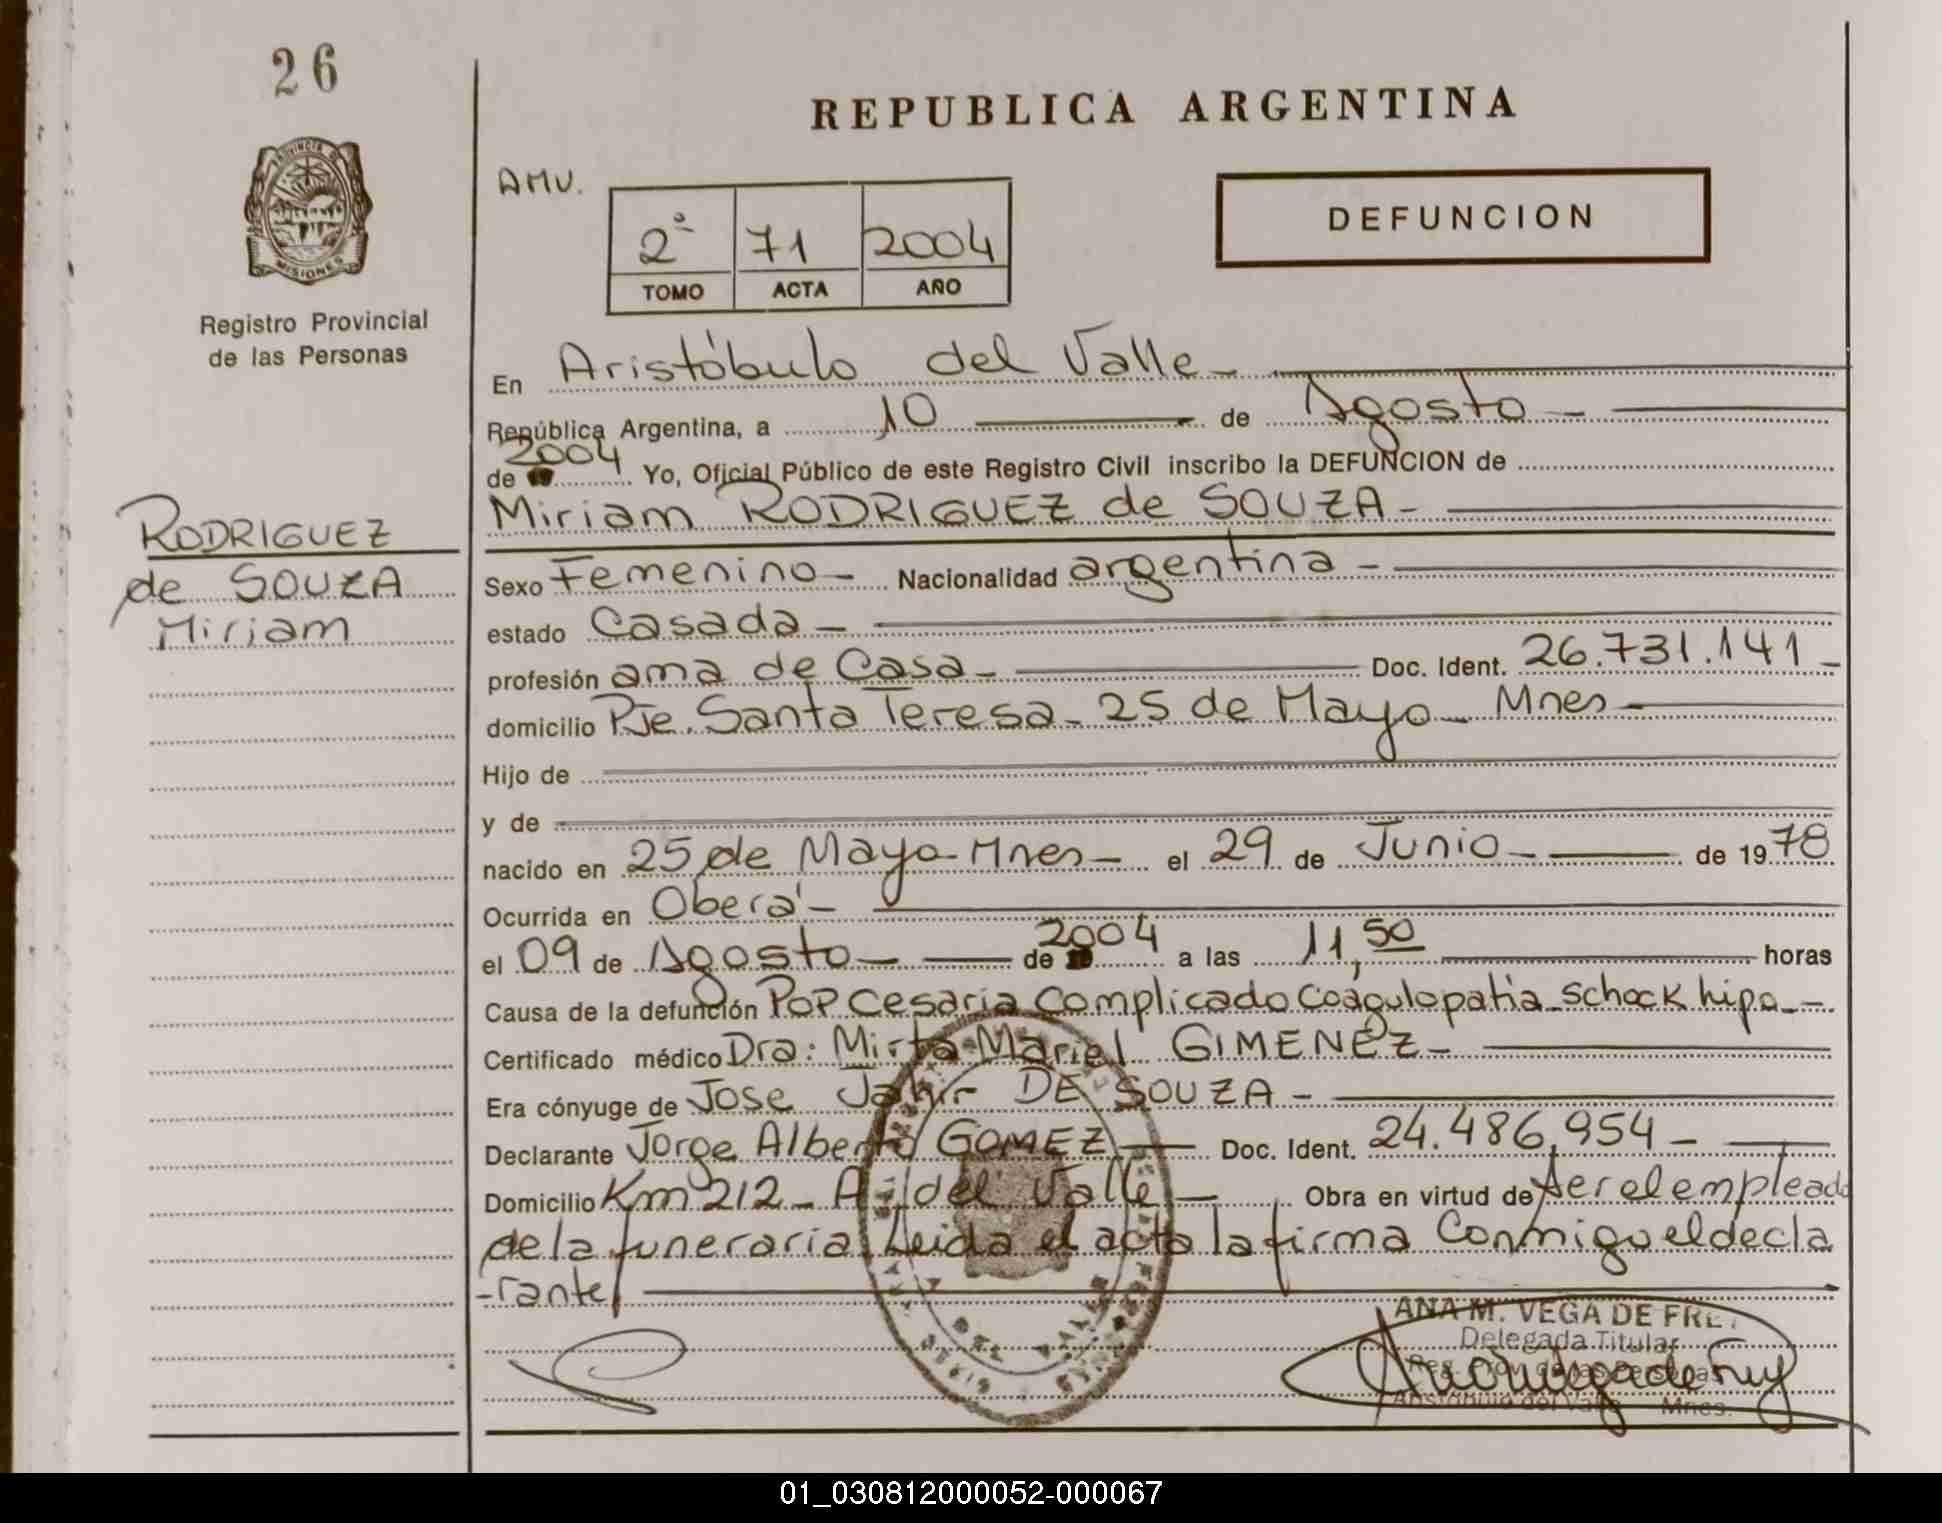 26
REPUBLICA ARGENTINA
PROVINCIA DE
MISIONES
Registro Provincial
de las Personas
AMV.
2ª 71 2004
TOMO ACTA AÑO
DEFUNCION
En Aristóbulo del Valle -
República Argentina, a 10 de Agosto -
de 2004 Yo, Oficial Público de este Registro Civil inscribo la DEFUNCION de
Miriam RODRIGUEZ de SOUZA -
RODRIGUEZ
de SOUZA
Miriam
Sexo Femenino - Nacionalidad argentina -
estado Casada -
profesión ama de Casa - Doc. Ident. 26.731.141 -
domicilio Pje. Santa Teresa - 25 de Mayo - Mnes -
Hijo de
y de
nacido en 25 de Mayo - Mnes - el 29 de Junio - de 1978
Ocurrida en Oberá -
el 09 de Agosto - de 2004 a las 11,50 horas
Causa de la defunción POP Cesaria Complicado Coagulopatia - schock hipo -
Certificado médico Dra: Mirta Mariel GIMENEZ -
Era cónyuge de Jose Jahir DE SOUZA -
Declarante Jorge Alberto GOMEZ Doc. Ident. 24.486.954 -
Domicilio Km 212 - A. del Valle - Obra en virtud de ser el empleado
de la funeraria. Leida el acta la firma Conmigo el decla
-rante
ANA M. VEGA DE
Delegada Titular
Reg. Prov. de las Personas
Aristóbulo del Valle Mnes.
DEL VALLE
01_030812000052-000067